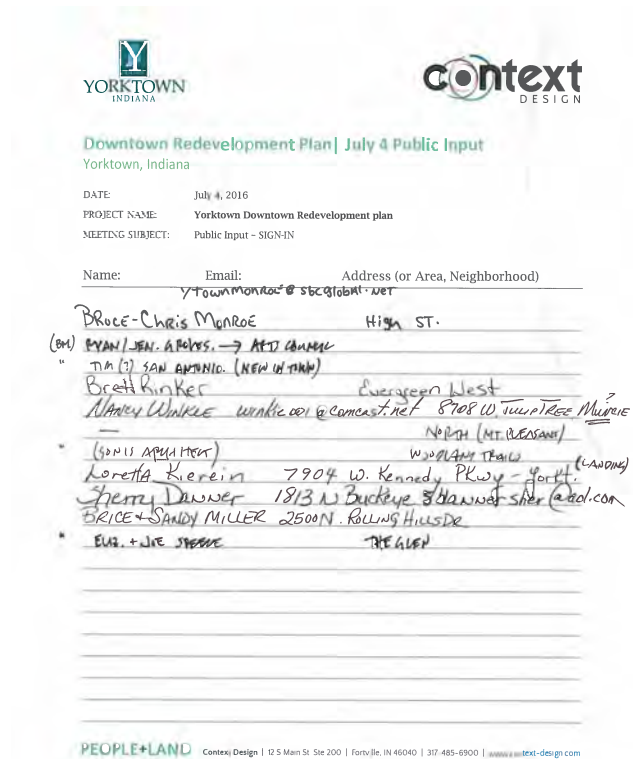 YORKTOWN
INDIANA
context
DESIGN
Downtown Redevelopment Plan| July 4 Public Input
Yorktown, Indiana
DATE: July 4, 2016
PROJECT NAME: Yorktown Downtown Redevelopment plan
MEETING SUBJECT: Public Input – SIGN-IN
Name: Email: Address (or Area, Neighborhood)
YTownMonroe@sbcglobal.net
BRUCE-CHRIS MONROE High ST.
(BM) RYAN/JEN. GROVES. →
" TIM (?) SAN ANTONIO. (NEW IN TOWN)
Brett Rinker Evergreen West
NANCY WINKLE winkie001@comcast.net 8708 W. TULIPTREE MUNCIE ?
— NORTH (MT. PLEASANT)
" (SON IS WOODLAND TRAILS
Loretta Kierein 7904 W. Kennedy PKwy - Yorkt. (LANDING)
Sherry Danner 1813 N Buckeye @aol.com
BRICE & SANDY MILLER 2500 N. ROLLING HILLS DR
" ELIZ. + JOE THE GLEN
PEOPLE+LAND Context Design | 12 S Main St Ste 200 | Fortville, IN 46040 | 317-485-6900 | text-design.com